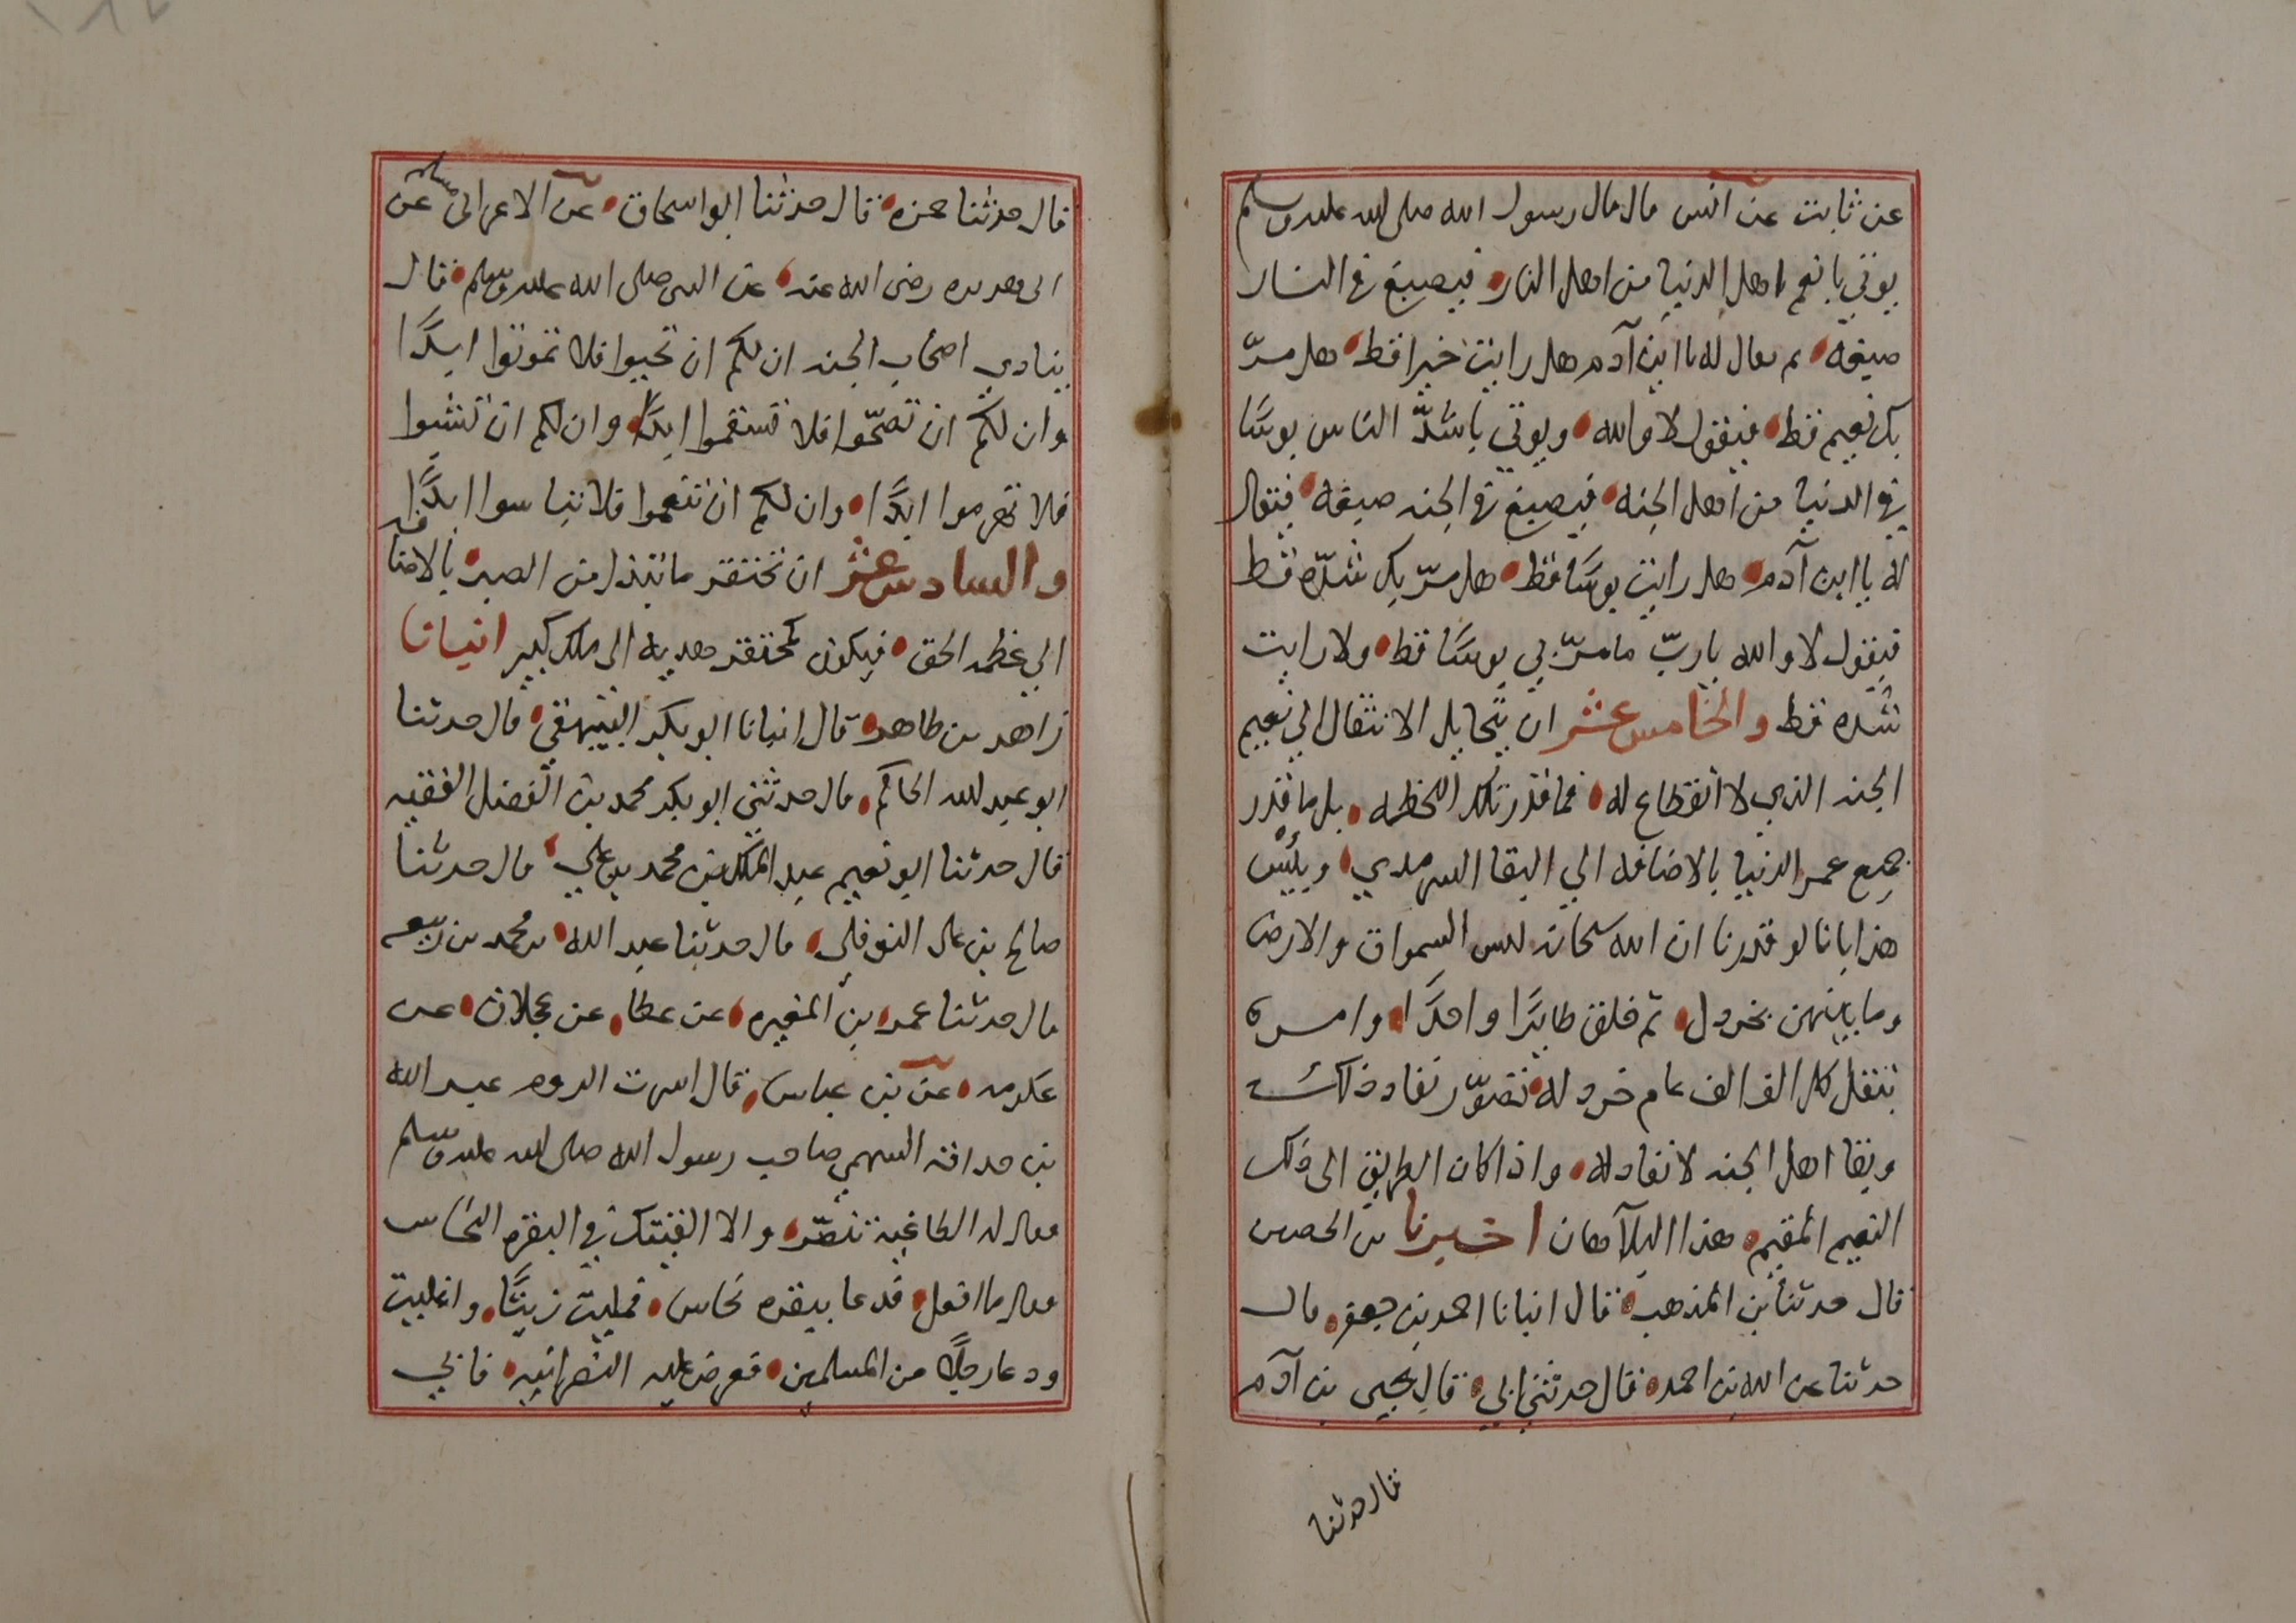 عن ثابت عن انس قال قال رسول الله صلى الله عليه وسلم
يوتي بانعم اهل الدنيا من اهل النار فيصبغ في النار
صبغه ثم يقال له يا ابن آدم هل رايت خيرا قط هل مرّ
بك نعيم قط فيقول لا والله ويوتي باشدّ الناس بوسًا
في الدنيا من اهل الجنه فيصبغ في الجنه صبغه فيقال
له يا ابن آدم هل رايت بوسًا قط هل مرّ بك شدّه قط
فيقول لا والله يا ربّ ما مرّ بي بوسًا قط ولا رايت
شده قط والخامس عشر ان يتخايل الانتقال الي نعيم
الجنه الذي لا انقطاع له فما قدر تلك اللحظه بل ما قدر
جميع عمر الدنيا بالاضافه الي البقا السرمدي وبيّن
هذا بانا لو قدرنا ان الله سبحانه السموات والارض
وما بينهن بخردل ثم خلق طايرًا واحدًا وامره
بنقل كل الف الف عام خردله تصوّر نفاد ذلك
وبقا اهل الجنه لا نفاد له واذا كان الطريق الى ذلك
النعيم المقيم هذا البلآ هان اخبرنا بن الحصين
قال حدثنا بن المذهب قال انبانا احمد بن جعفر قال
حدثنا عبد الله بن احمد قال حدثني ابي قال يحيى بن آدم
قال حدثنا
قال حدثنا حمزه قال حدثنا ابو اسحاق عن الاغر ابي مسلم عن
ابي هريره رضى الله عنه عن النبي صلى الله عليه وسلم قال
ينادي اصحاب الجنه ان لكم ان تحيوا فلا تموتوا ابدًا
وان لكم ان تصحّوا فلا تسقموا ابدًا وان لكم ان تشبوا
فلا تهرموا ابدًا وان لكم ان تنعموا فلا تياسوا ابدًا
والسادس عشر ان تحتقر ما تبذل من الصبر بالاضافه
الي عظمه الحق فيكون كمحتقر هديه الى ملك كبير انبانا
زاهر بن طاهر قال انبانا ابو بكر البيهقي قال حدثنا
ابو عبد الله الحاكم قال حدثني ابو بكر محمد بن الفضل الفقيه
قال حدثنا ابو نعيم عبد الملك بن محمد بن علي قال حدثنا
صالح بن علي النوفلي قال حدثنا عبد الله بن محمد بن ربيعه
قال حدثنا عمر بن المغيره عن عطا عن عجلان عن
عكرمه عن بن عباس قال اسرت الروم عبد الله
بن حدافه السهمي صاحب رسول الله صلى الله عليه وسلم
فقال له الطاغيه تنصّر والا القيتك في البقره النحاس
فقال ما افعل فدعا ببقره نحاس فمليت زيتًا واغليت
ودعا رجلًا من المسلمين فعرض عليه النصرانيه فابي